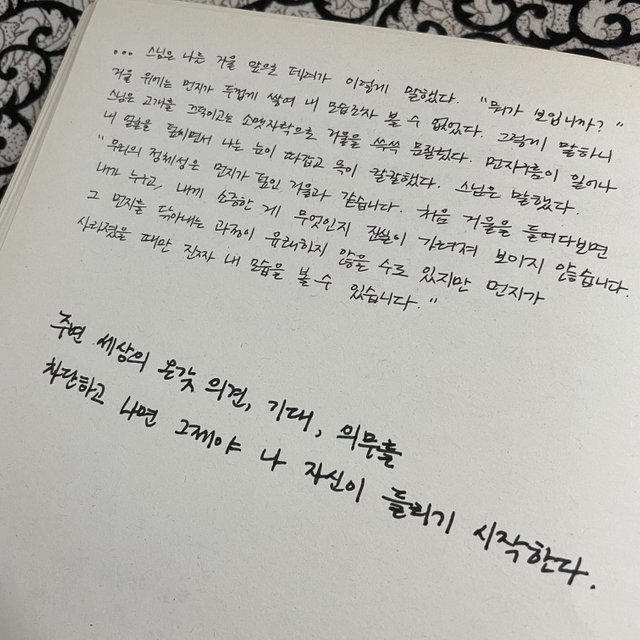 ... 스님은 나를 거울 앞으로 데려가 이렇게 말했다. "뭐가 보입니까?"
거울 위에는 먼지가 두껍게 쌓여 내 모습조차 볼 수 없었다. 그렇게 말하니
스님은 고개를 끄덕이고는 소맷자락으로 거울을 쓱쓱 문질렀다. 먼지구름이 일어나
내 얼굴을 덮치면서 나는 눈이 따갑고 목이 칼칼했다. 스님은 말했다.
"우리의 정체성은 먼지가 덮인 거울과 같습니다. 처음 거울을 들여다보면
내가 누구고, 내게 소중한 게 무엇인지 진실이 가려져 보이지 않습니다.
그 먼지를 닦아내는 과정이 유쾌하지 않을 수도 있지만 먼지가
사라졌을 때만 진짜 내 모습을 볼 수 있습니다."
주변 세상의 온갖 의견, 기대, 의무를
차단하고 나면 그제야 나 자신이 들리기 시작한다.